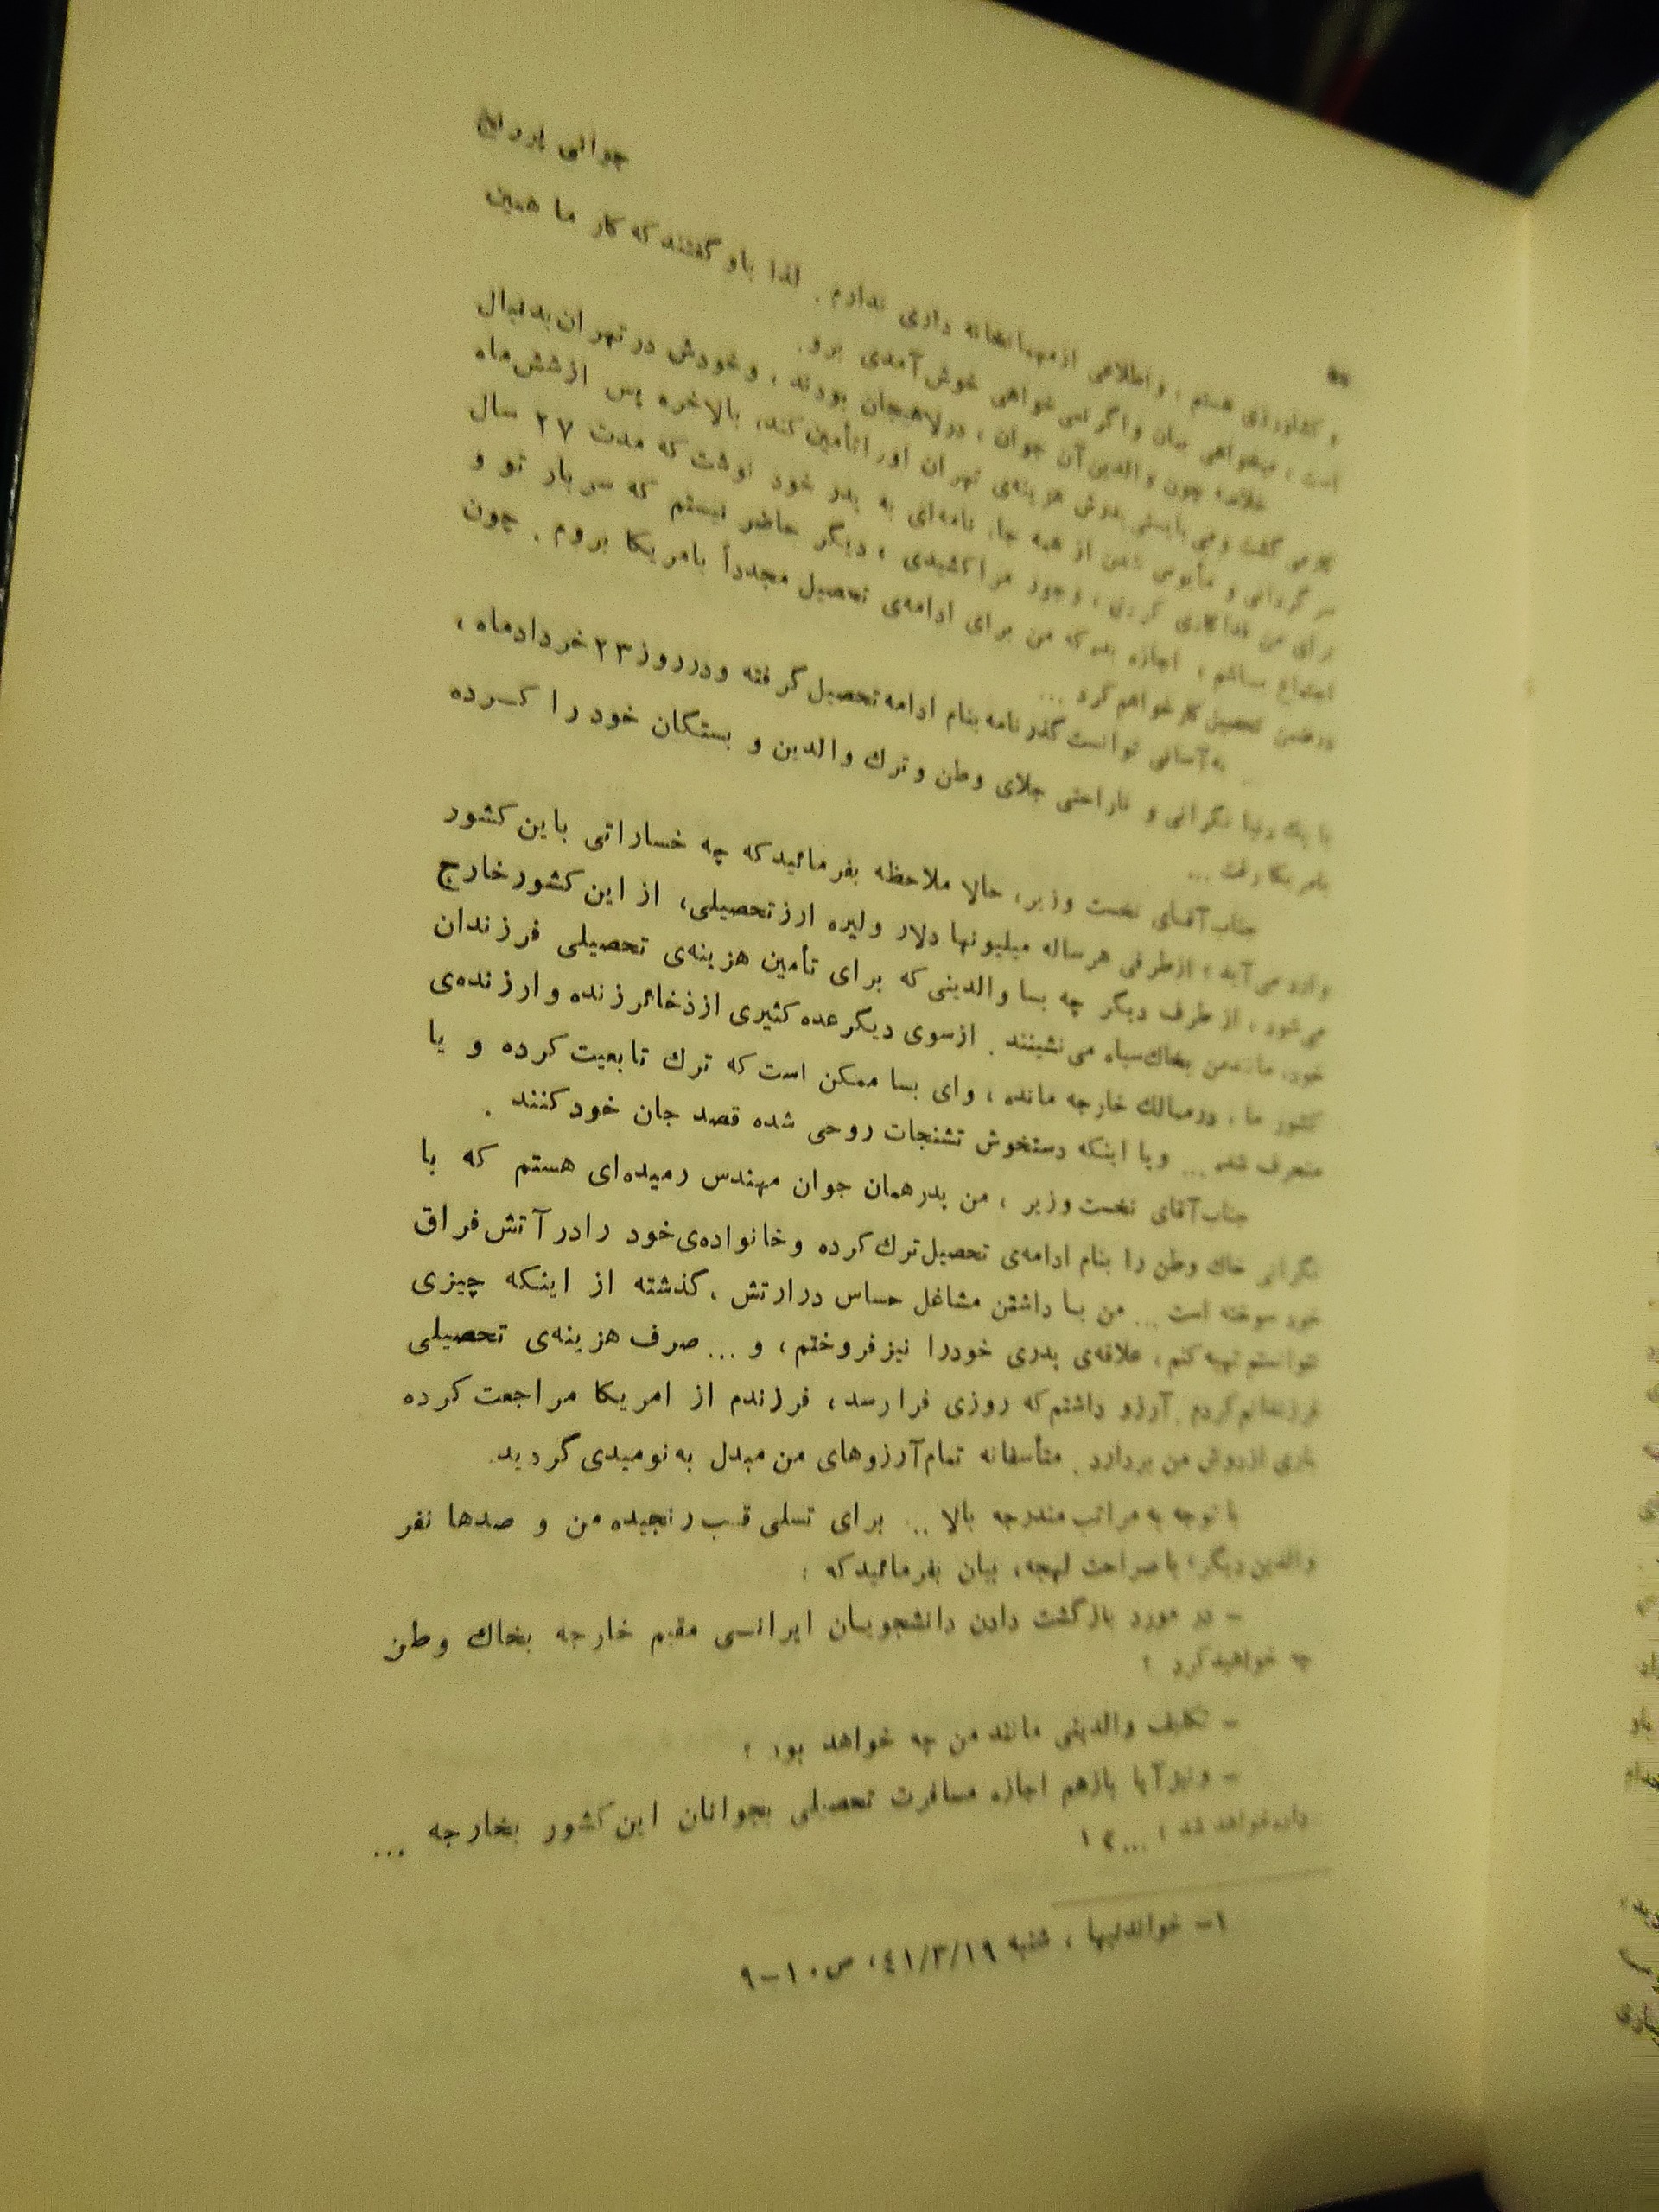 جوانی پر رنج
و کشاورزی هستم ، و اطلاعی از مهمانخانه داری ندارم . لذا باو گفتند که کار ما همین
است ، میخواهی بمان و اگر نمی‌خواهی خوش آمدی برو.
خلاصه چون والدین آن جوان ، در لاهیجان بودند ، و خودش در تهران بدنبال
کار می گشت و می بایستی پدرش هزینه‌ی تهران او را تأمین کند، بالاخره پس از شش ماه
سرگردانی و مأیوس شدن از همه جا، نامه‌ای به پدر خود نوشت که مدت ۲۷ سال
برای من فداکاری کردی ، و جور مرا کشیدی ، دیگر حاضر نیستم که سر بار تو و
اجتماع بباشم ، اجازه بده که من برای ادامه‌ی تحصیل مجدداً بامریکا بروم . چون
در ضمن تحصیل کار خواهم کرد ...
به آسانی توانست گذرنامه بنام ادامه تحصیل گرفته و در روز ۲۳ خرداد ماه ،
با یك دنیا نگرانی و ناراحتی جلای وطن و ترك والدین و بستگان خود را کرده
بامریکا رفت ...
جناب آقـای نخست وزیر، حالا ملاحظه بفرمائید که چه خساراتی باین کشور
وارد می آید ، از طرفی هر ساله میلیونها دلار و لیره ارز تحصیلی، از این کشور خارج
می شود ، از طرف دیگر چه بسا والدینی که برای تأمین هزینه‌ی تحصیلی فرزندان
خود، مانند من بخاك سیاه می نشینند . از سوی دیگر عده کثیری از ذخائر زنده و ارزنده‌ی
کشور ما ، در ممالك خارجه مانده ، و ای بسا ممکن است که ترك تابعیت کرده و یا
منحرف شده ... و یا اینکه دستخوش تشنجات روحی شده قصد جان خود کنند .
جناب آقای نخست وزیر ، من پدر همان جوان مهندس رمیده‌ای هستم که با
نگرانی خاك وطن را بنام ادامه‌ی تحصیل ترك کرده و خانواده‌ی خود را در آتش فراق
خود سوخته است ... من بـا داشتن مشاغل حساس در ارتش ، گذشته از اینکه چیزی
نتوانستم تهیه کنم ، علاقه‌ی پدری خود را نیز فروختم ، و ... صرف هزینه‌ی تحصیلی
فرزندانم کردم . آرزو داشتم که روزی فرا رسد ، فرزندم از امریکا مراجعت کرده
باری از دوش من بردارد . متأسفانه تمام آرزوهای من مبدل به نومیدی گردید.
با توجه به مراتب مندرجه بالا ... برای تسلی قلب رنجیده من و صدها نفر
والدین دیگر، با صراحت لهجه، بیان بفرمائید که :
– در مورد بازگشت دادن دانشجویـان ایرانـی مقیم خارجه بخاك وطن
چه خواهید کرد ؟
– تکلیف والدینی مانند من چه خواهد بود ؟
– و نیز آیا بازهم اجازه مسافرت تحصیلی بجوانان این کشور بخارجه ...
داده خواهد شد ؟ ... ۱
۱– خواندنیها ، شنبه ۴۱/۳/۱۹، ص ۱۰–۹